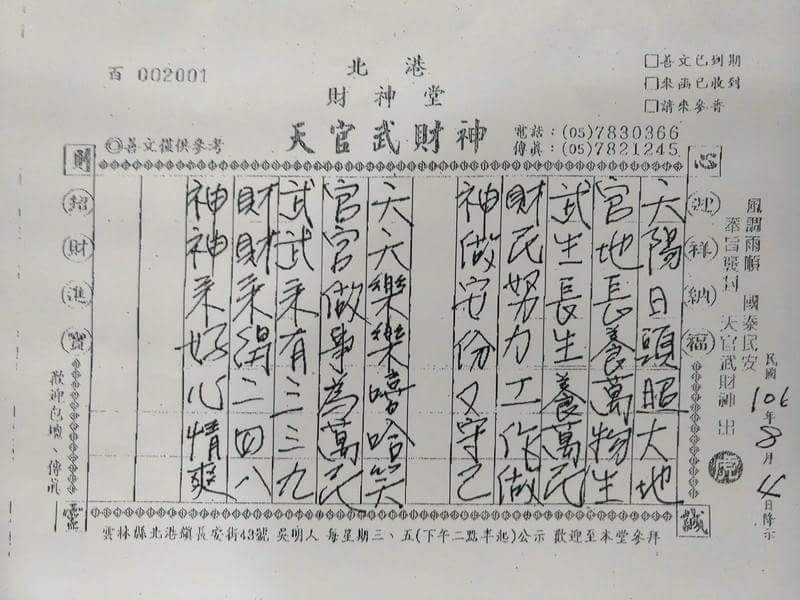 百 002001
北港
財神堂
天官武財神
◎善文僅供參考
電話：(05)7830366
傳真：(05)7821245
□善文已到期
□來函已收到
□請來參香
心誠
財靈
迎祥納福
招財進寶
風調雨順 國泰民安
奉旨發封 天官武財神出
民國106年8月4日降示
天陽日頭照大地
官地長養萬物生
武生長生養萬民
財民努力工作做
神做安份又守己
天天樂樂嘻哈笑
官官做事為萬民
武武來有三三九
財財來得二四八
神神來好心情爽
歡迎包壇、傳真
雲林縣北港鎮長安街43號 吳明人 每星期三、五(下午二點半起)公示 歡迎至本堂參拜